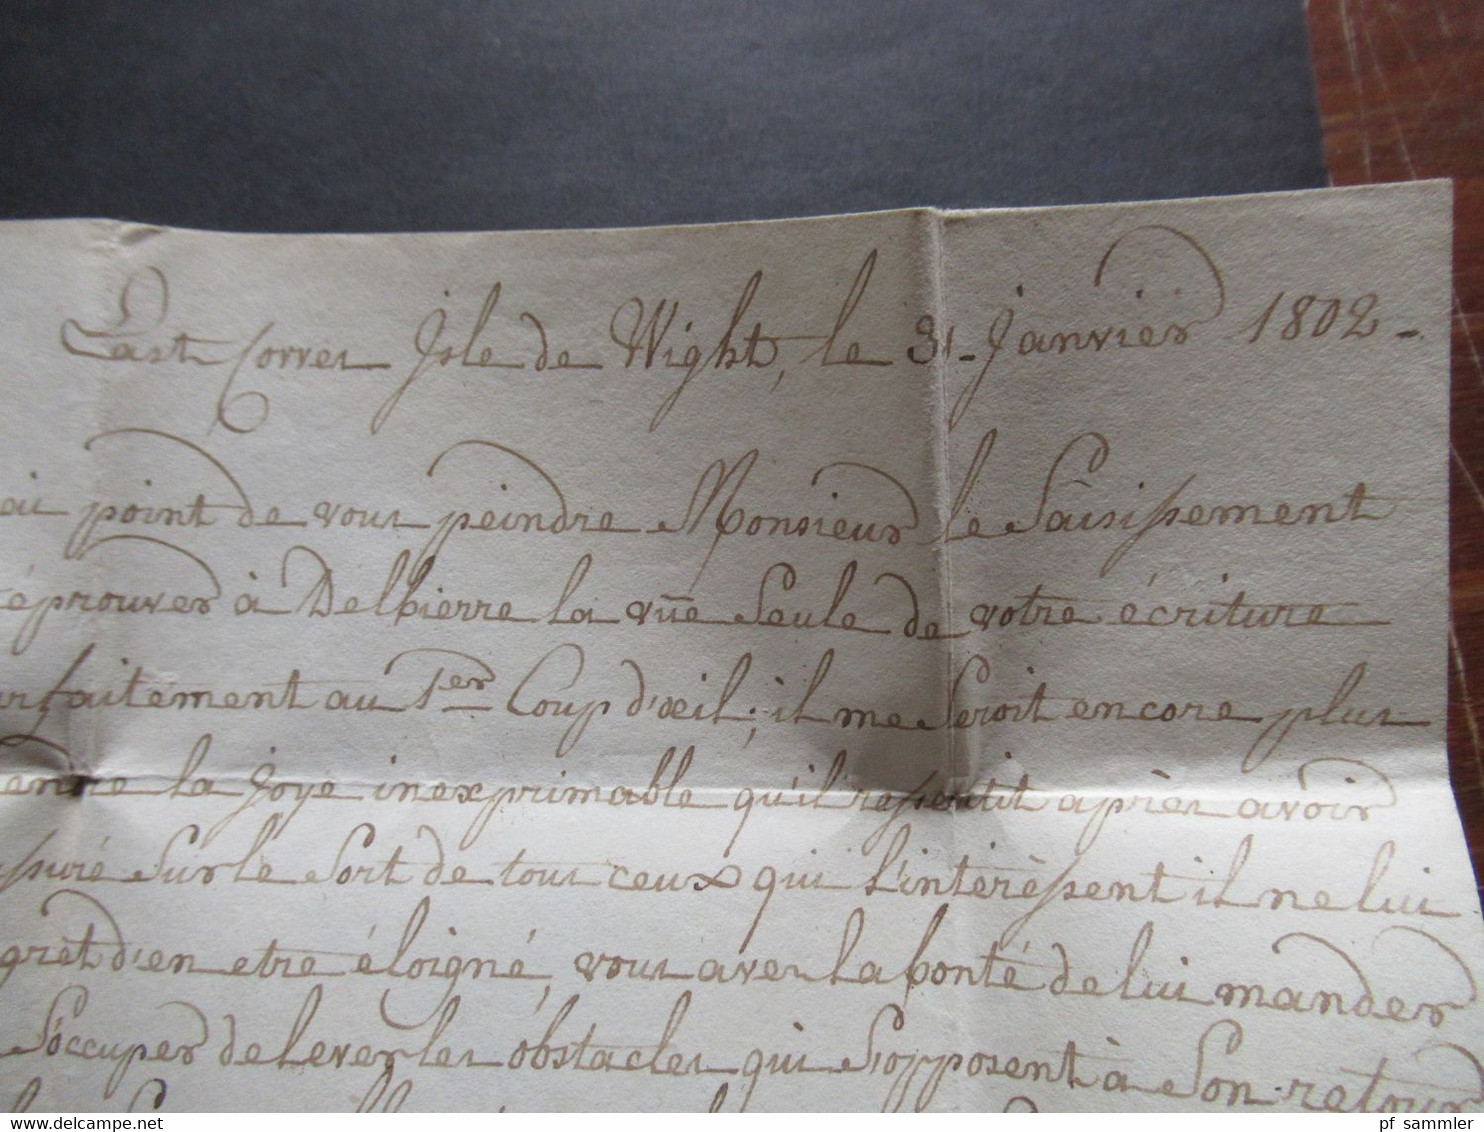 East Cowes Isle de Wight, le 31 Janvier 1802 -
ai point de vous peindre Monsieur le Saisissement
éprouver à Delpierre la vüe Seule de votre écriture
rfaitement au 1er Coup d'œil; il me Seroit encore plus
la joye inexprimable qu'il ressentit après avoir
ssuré Sur le Sort de tous ceux qui l'intérèssent il ne lui
gret d'en etre éloigné, vous avez la bonté de lui mander
S'occuper de lever les obstacles qui S'opposent à Son retour
pf_sammler
www.delcampe.net